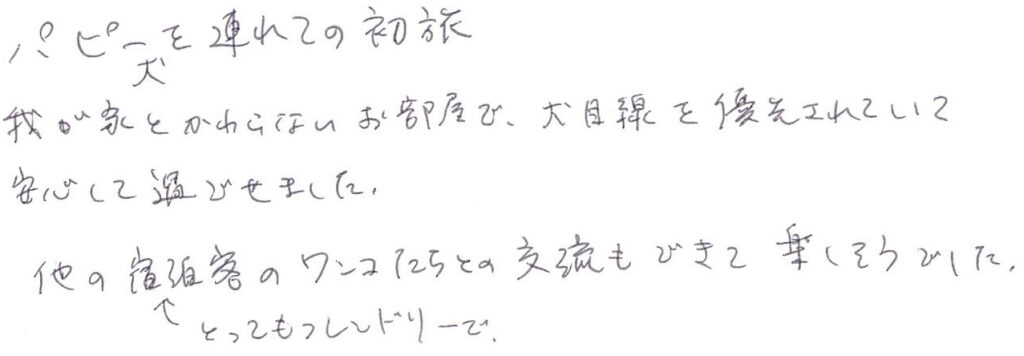 パピーを連れての初旅
犬
我が家とかわらないお部屋で、犬目線を優先されていて
安心して過ごせました。
他の宿泊客のワンコたちとの交流もできて楽しそうでした。
↑とってもフレンドリーで、